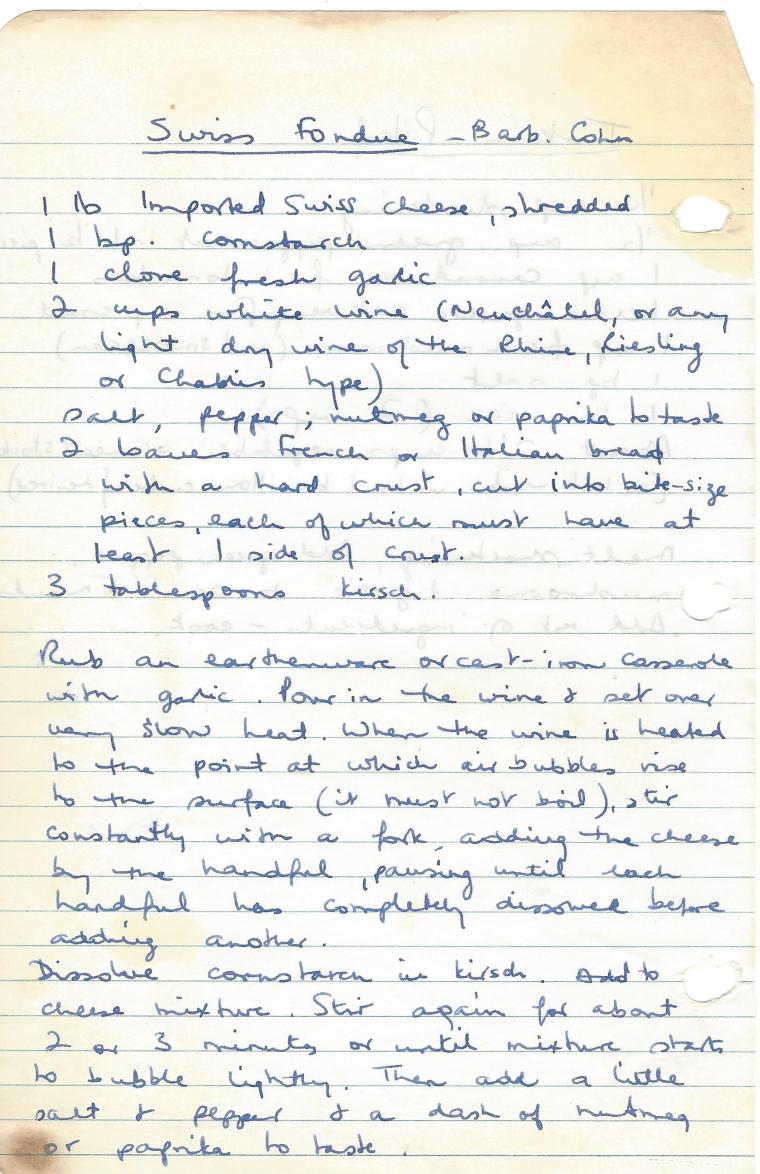 Swiss Fondue - Barb. Cohn
1 lb Imported Swiss cheese, shredded
1 bp. cornstarch
1 clove fresh garlic
2 cups white wine (Neuchâtel, or any
light dry wine of the Rhine, Riesling
or Chablis type)
salt, pepper; nutmeg or paprika to taste
2 loaves French or Italian bread
with a hard crust, cut into bite-size
pieces, each of which must have at
least 1 side of crust.
3 tablespoons kirsch.
Rub an earthenware or cast-iron casserole
with garlic. Pour in the wine & set over
very slow heat. When the wine is heated
to the point at which air bubbles rise
to the surface (it must not boil), stir
constantly with a fork, adding the cheese
by the handful, pausing until each
handful has completely dissolved before
adding another.
Dissolve cornstarch in kirsch. Add to
cheese mixture. Stir again for about
2 or 3 minutes or until mixture starts
to bubble lightly. Then add a little
salt & pepper & a dash of nutmeg
or paprika to taste.